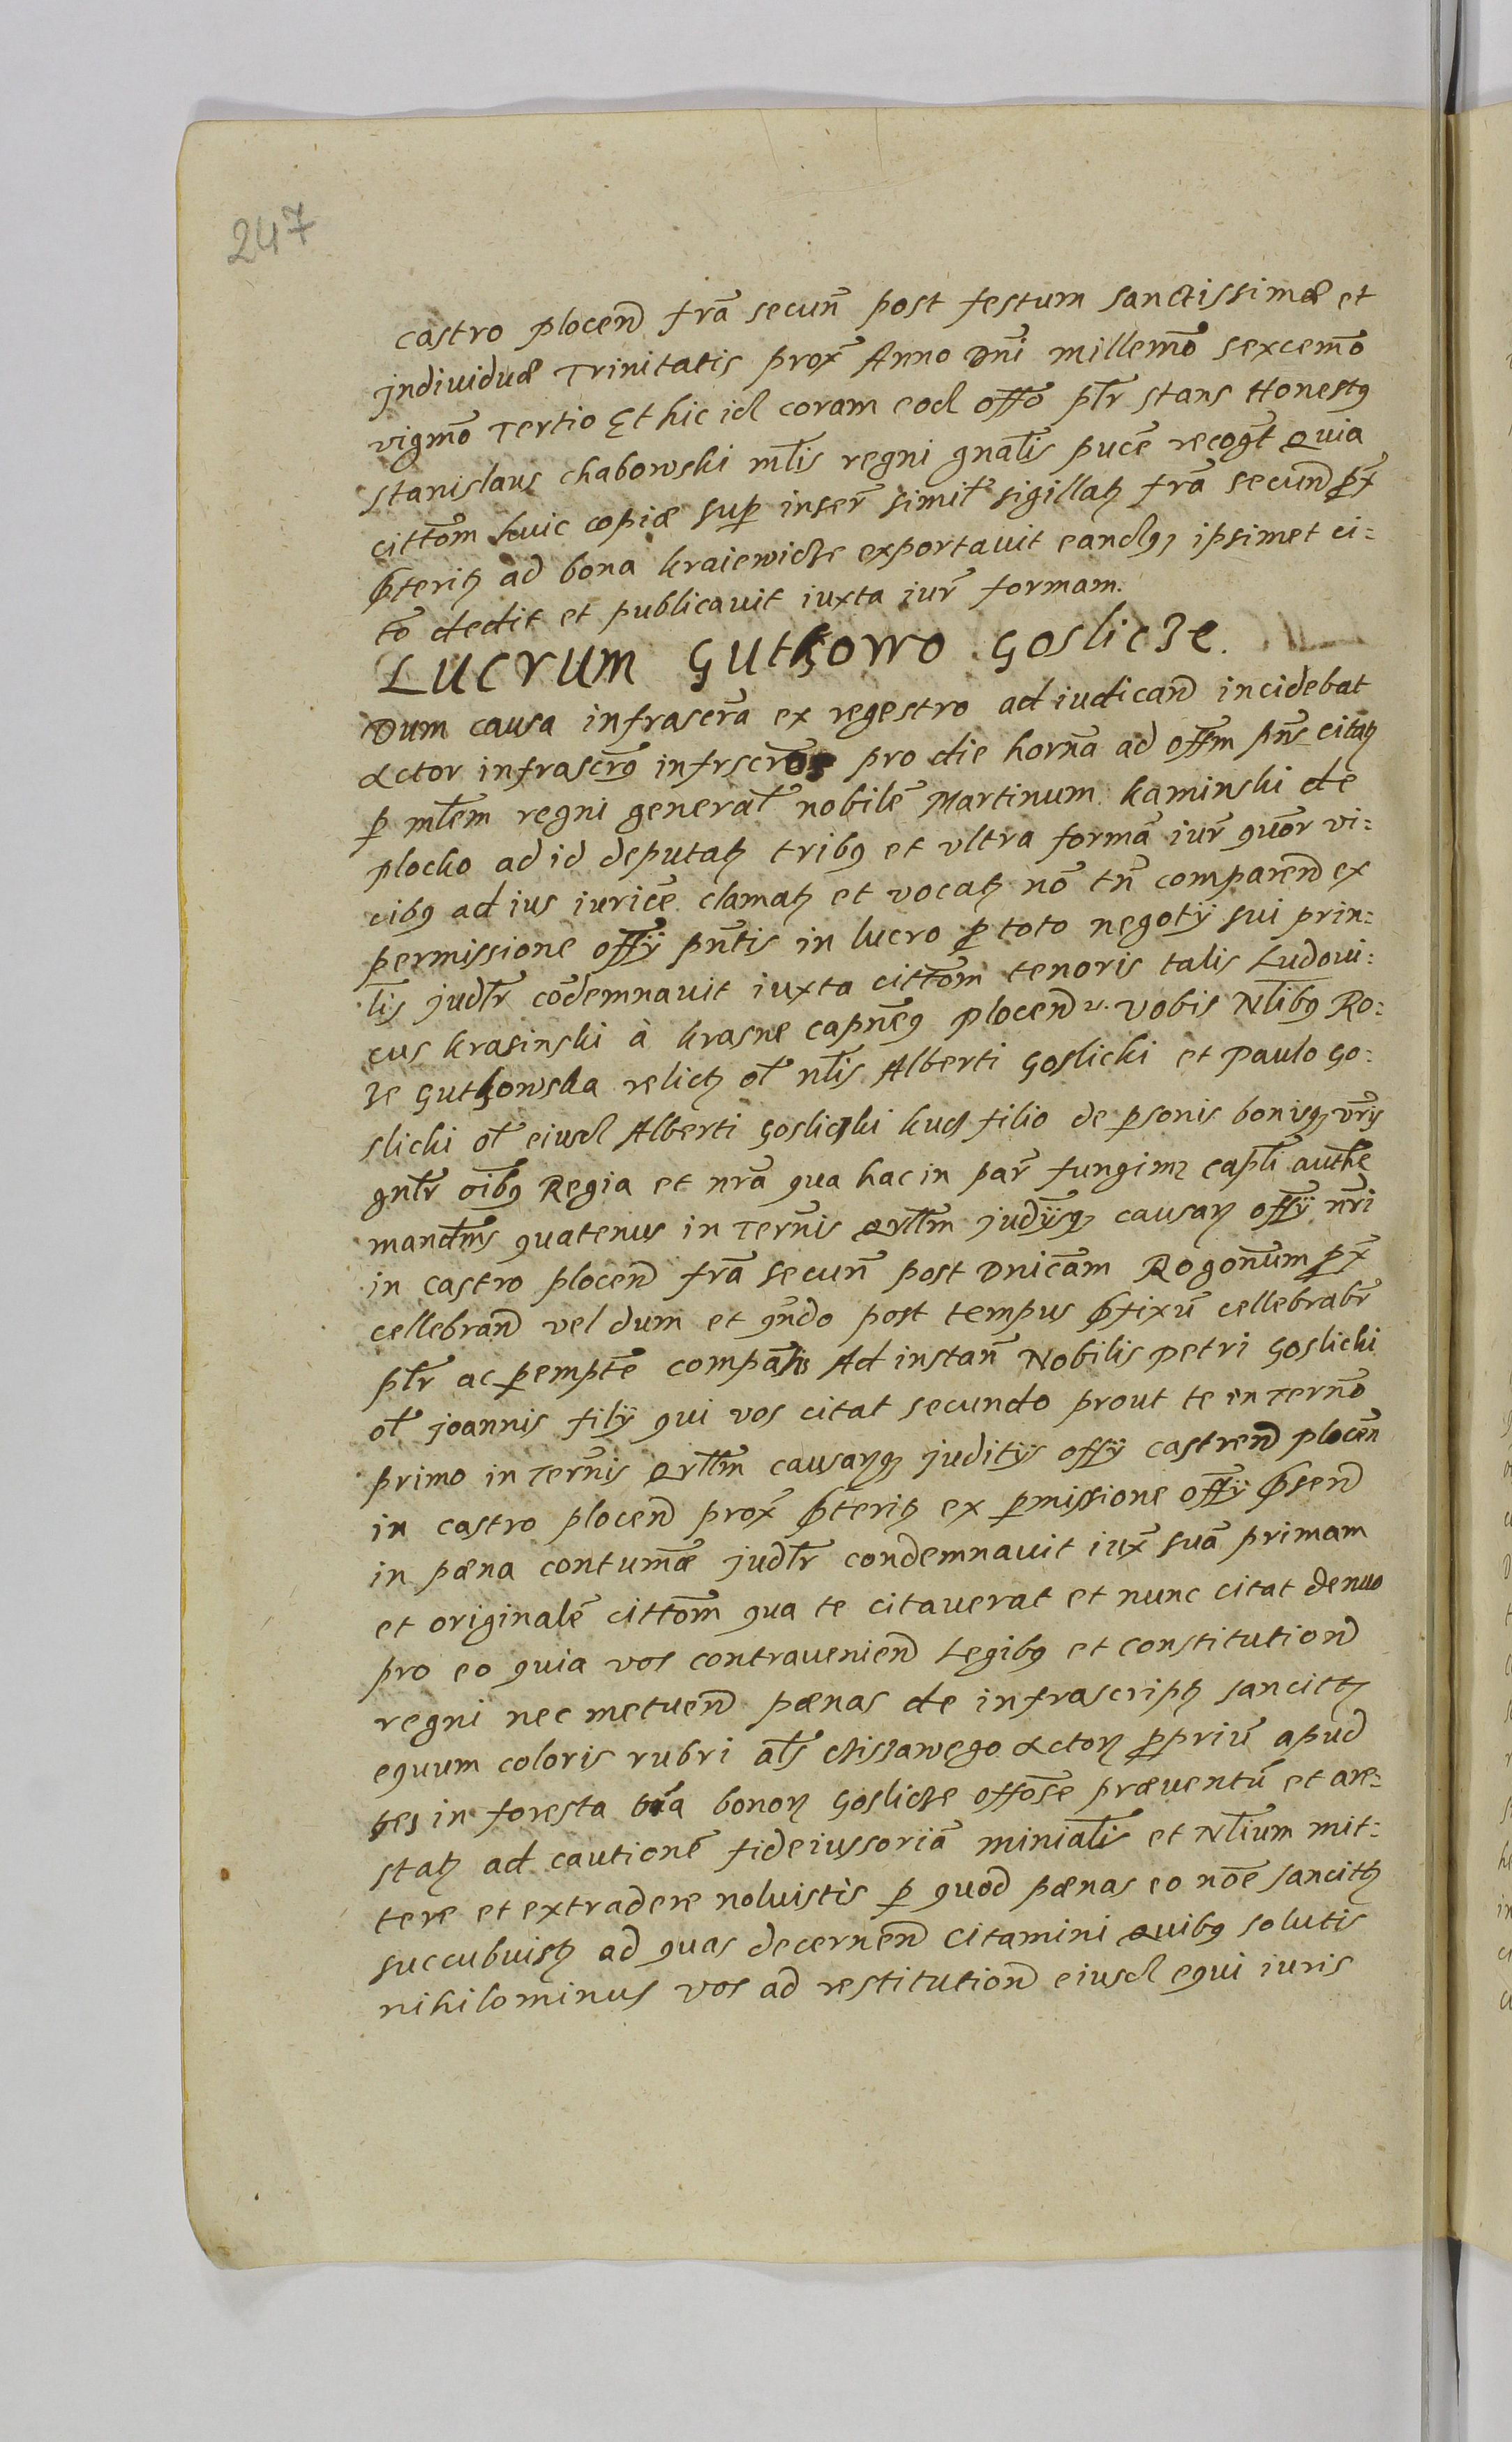 247
castro plocen̄ fr̄a secun̄ post festum sanctissimæ et
jndividuæ Trinitatis prox̄ Anno Dn̄i millem̄o sexcem̄o
vigm̄o Tertio Et hic id coram eod off̄o pl̄r stans Honestꝰ
Stanislaus chabowski ml̄is regni gnāl̄is pucē recogn̄t Quia
citt̄om huic copiæ sup̱ inser̄ simil̄r sigillatꝫ fr̄a secun̄ p̄x̄
p̄teritꝫ ad bona kraiewicze exportavit eandqꝫ ipsimet ci=
to dedit et publicavit iuxta iur̄ formam.
LUCRUM Gutkowo Goslicze.
Dum causa infrascr̄a ex regestro ad iudican̄ incidebat
Actor infrascr̄ꝰ infrscr̄os pro die horn̄a ad off̄m pn̄s citatꝫ
p̱ ml̄em regni general̄ nobilē Martinum kaminski de
plocko ad id deputatꝫ tribꝰ et ultra formā iur̄ quor̄ vi=
cibꝰ ad ius iuricē clamatꝫ et vocatꝫ nō tn̄ comparen̄ ex
permissione offỹ pn̄tis in lucro p̱ toto negotij sui prin=
l̄is judl̄r cōdemnavit iuxta citt̄om tenoris talis Ludovi=
cus krasinski à krasne capn̄eꝰ plocen̄ vobis Nl̄ibꝰ Ro=
ze Gutkowska relictꝫ ol̄ nl̄is Alberti Goslicki et Paulo Go=
slicki ol̄ eiusd Alberti Goslicki filio de p̱sonis bonisqꝫ vr̄is
gnl̄r oībꝰ Regia et nr̄a qua hac in par̄ fungimꝫ capl̄i autħe
mandm̄s quatenus in Tern̄is qrll̄m judÿsqꝫ causarꝫ offỹ nr̄i
in castro plocen̄ fr̄a secun̄ post Dnicam Rogon̄um p̄x̄
cellebran̄ vel dum et qn̄do post tempus p̄fixū cellebrabr̄
pl̄r ac p̱empt̄e compatis Ad instan̄ Nobilis Petri Goslicki
ol̄ joannis filÿ qui vos citat secundo prout te in Tern̄o
primo in Tern̄is qrll̄m causarꝫqꝫ juditÿs offÿ castren̄ plocen̄
in castro plocen̄ prox̄ p̄teritꝫ ex p̱missione offỹ p̄sen̄
in pæna contumāæ judl̄r condemnavit iux̄ suā primam
et originalē citt̄om qua te citaverat et nunc citat denuo
pro eo quia vos contravenien̄ Legibꝰ et constitution̄
regni nec metuen̄ pænas de infrascriptꝫ sancittꝫ
equum coloris rubri al̄s Ciszawego Actorꝫ p̱priū apud
ges in foresta bonorꝫ Goslicze off̄ose præventū et are=
statꝫ ad cautionē fideiussoriā minial̄is et Nl̄ium mit=
tere et extradere noluistis p̱ quod pænas eo nōe sancittꝫ
succubuistꝫ ad quas decernen̄ Citamini Quibꝰ solutis
nihilominus vos ad restitution̄ eiusd equi iuris